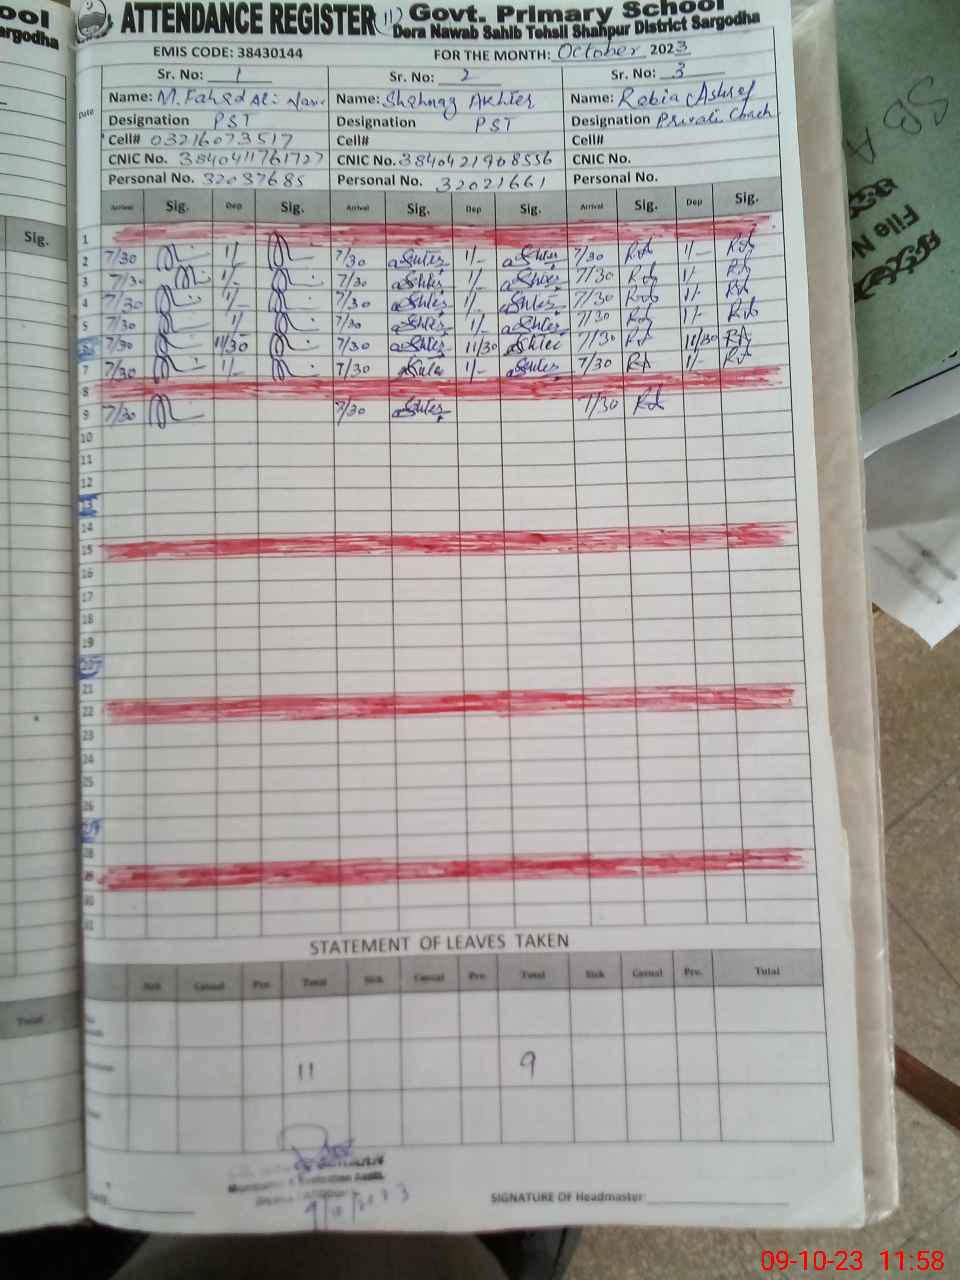 ool
argodha
Sig.
Total
ATTENDANCE REGISTER (11) Govt. Primary School
Dera Nawab Sahib Tehsil Shahpur District Sargodha
EMIS CODE: 38430144 FOR THE MONTH: October 2023
Sr. No: 1 Sr. No: 2 Sr. No: 3
Date
Name: M. Fahad Ali Name: Shahnaz Akhter Name: Rabia Ashraf
Designation PST Designation PST Designation Private Coach
Cell# 03216073517 Cell# Cell#
CNIC No. 3840411761727 CNIC No. 3840421968556 CNIC No.
Personal No. 32037685 Personal No. 32021661 Personal No.
Arrival Sig. Dep Sig. Arrival Sig. Dep Sig. Arrival Sig. Dep Sig.
1
2 7/30 1/- 7/30 1/- 7/30 1/-
3 7/30 1/- 7/30 1/- 7/30 1/-
4 7/30 1/- 7/30 1/- 7/30 1/-
5 7/30 1/ 7/30 1/- 7/30 1/-
6 7/30 11/30 7/30 11/30 7/30 11/30
7 7/30 1/- 7/30 1/- 7/30 1/-
8
9 7/30 7/30 7/30
10
11
12
13
14
15
16
17
18
19
20
21
22
23
24
25
26
27
28
29
30
31
STATEMENT OF LEAVES TAKEN
Sick Casual Pre. Total Sick Casual Pre. Total Sick Casual Pre. Total
11 9
9/10/2023
SIGNATURE OF Headmaster
File N
09-10-23 11:58